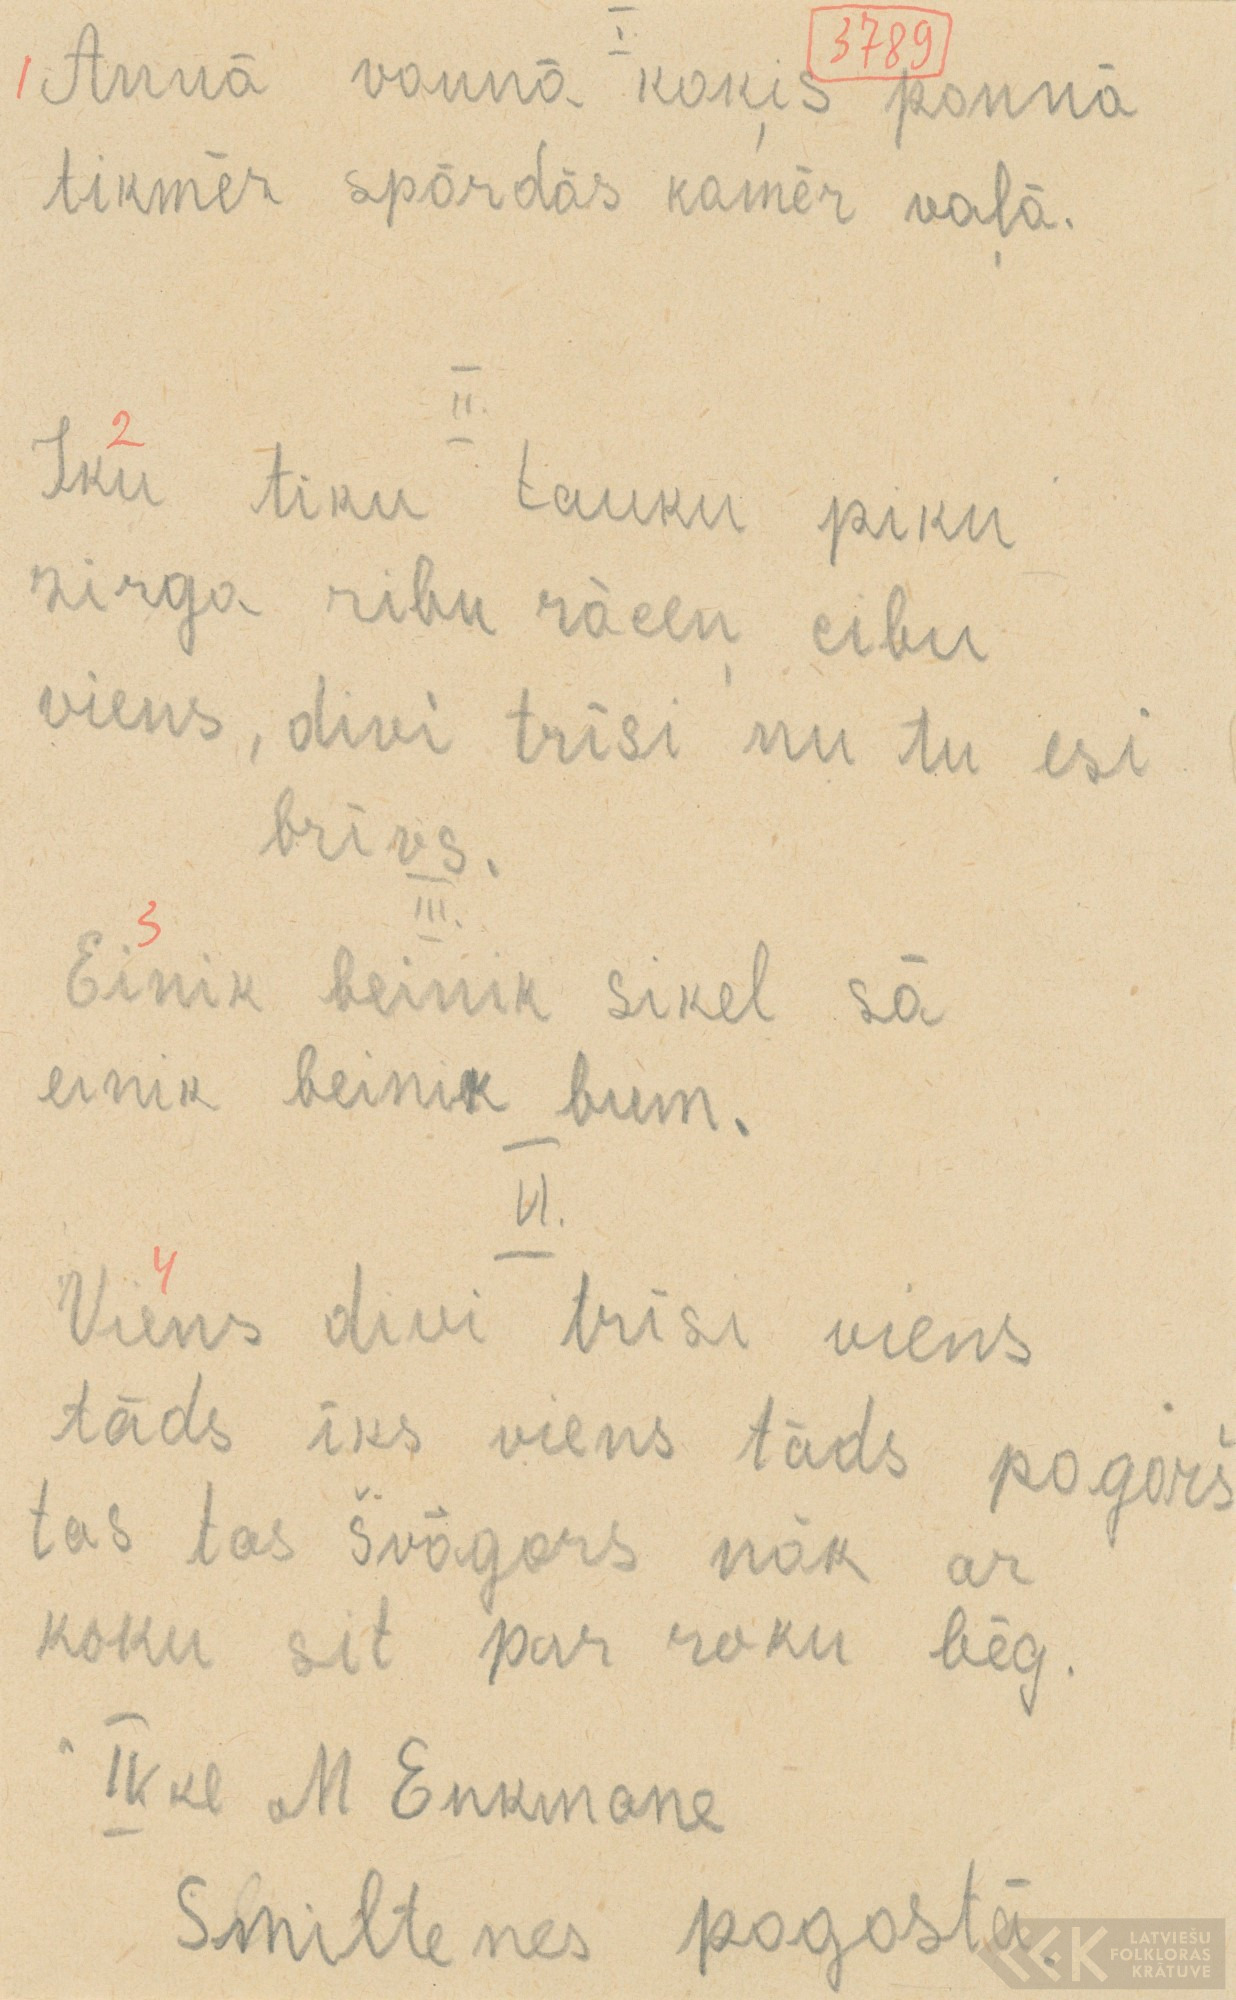 I.
3789
1 Annā vannā kaķis pannā
tikmēr spārdās kamēr vaļā.
II.
2
Iku tiku tauku piku
zirga ribu rāceņ cibu
viens, divi trīsi nu tu esi
brīvs.
III.
3
Einik beinik sikel sā
einik beinik bum.
VI.
4
Viens divi trīsi viens
tāds īks viens tāds pogarš
tas tas švāgars nāk ar
koku sit par roku bēg.
IV kl M Enkmane
Smiltenes pagastā.
LATVIEŠU
FOLKLORAS
KRĀTUVE